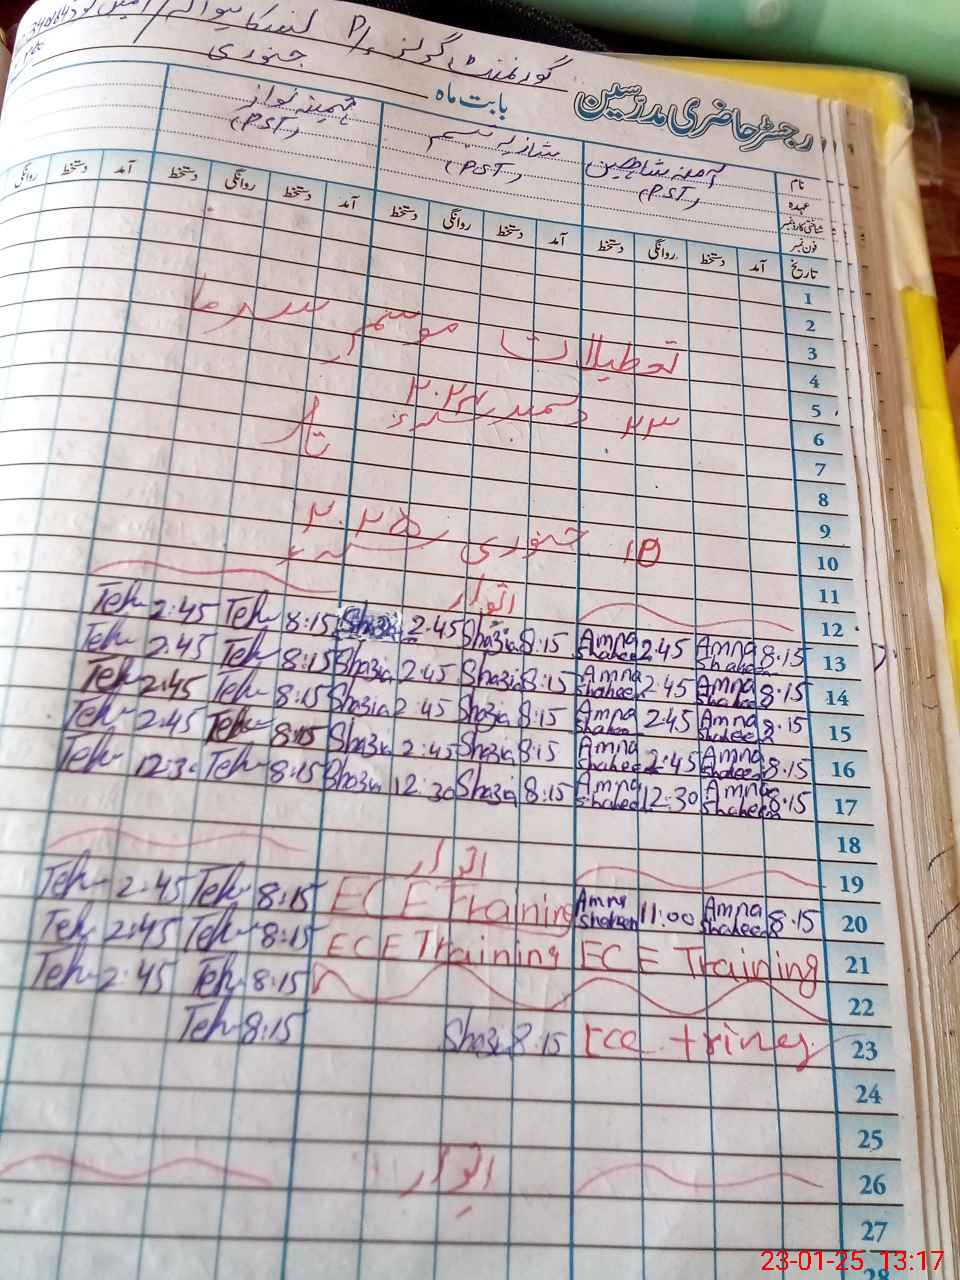 رجسٹر حاضری مدرسین
بابت ماہ جنوری
گورنمنٹ گرلز P/
نام آمنہ شاہین شازیہ نسیم تہمینہ نواز
عہدہ (PST) (PST) (PST)
شناختی کارڈ نمبر
فون نمبر
تاریخ آمد دستخط روانگی دستخط آمد دستخط روانگی دستخط آمد دستخط روانگی
1
2
3 تعطیلات موسم سرما
4 از
5 ۲۳ دسمبر ۲۰۲۴ء
6 تا
7
8
9
10 ۱۵ جنوری ۲۰۲۵ء
11
12 اتوار
Teh 2:45 Teh 8:15 Shazia 2:45 Shazia 8:15 Amna Shaheen 2:45 Amna Shaheen 8:15 13
Teh 2:45 Teh 8:15 Shazia 2:45 Shazia 8:15 Amna Shaheen 2:45 Amna Shaheen 8:15 14
Teh 2:45 Teh 8:15 Shazia 2:45 Shazia 8:15 Amna Shaheen 2:45 Amna Shaheen 8:15 15
Teh 2:45 Teh 8:15 Shazia 2:45 Shazia 8:15 Amna Shaheen 2:45 Amna Shaheen 8:15 16
Teh 12:30 Teh 8:15 Shazia 12:30 Shazia 8:15 Amna Shaheen 12:30 Amna Shaheen 8:15 17
18
19 اتوار
Teh 2:45 Teh 8:15 ECE Training Amna Shaheen 11:00 Amna Shaheen 8:15 20
Teh 2:45 Teh 8:15 ECE Training ECE Training 21
Teh 2:45 Teh 8:15 22
Teh 8:15 Shazia 8:15 ece trining 23
24
25
26 اتوار
27
28
23-01-25 13:17